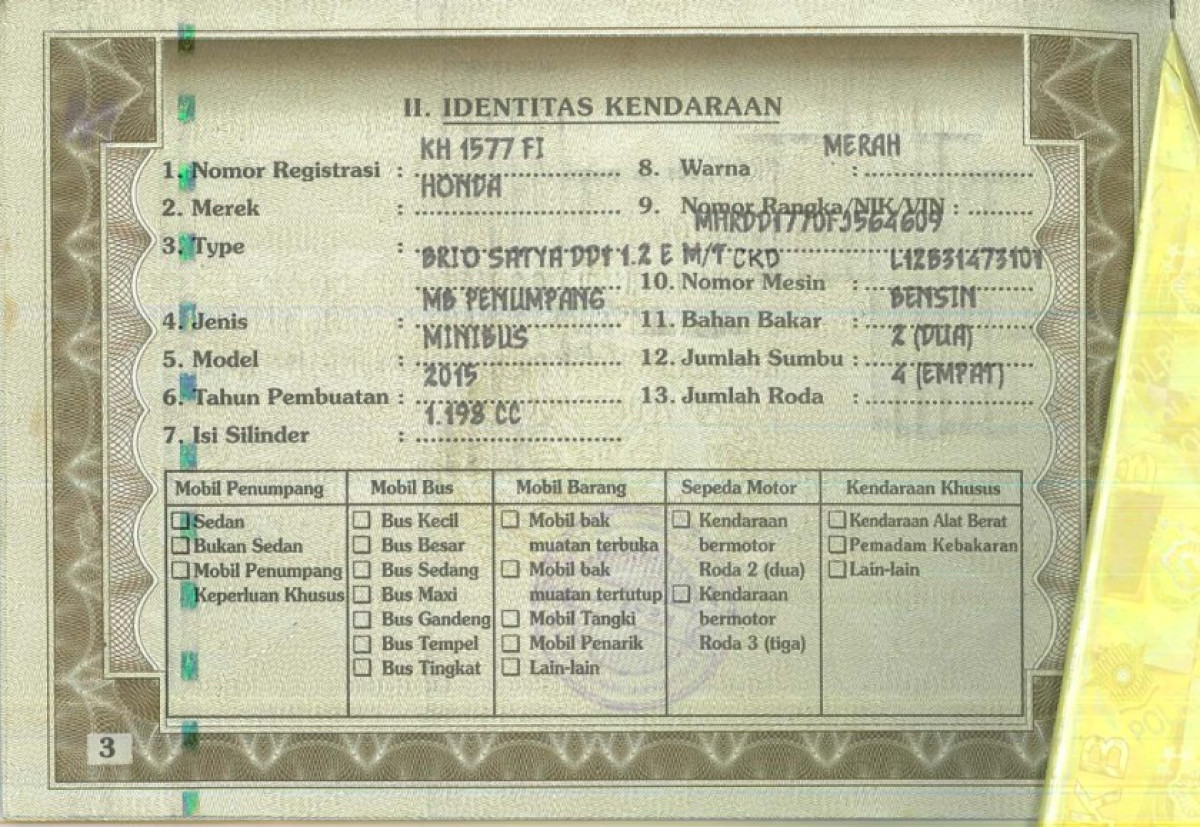 II. IDENTITAS KENDARAAN
1. Nomor Registrasi : KH 1577 FI
2. Merek : HONDA
3. Type : BRIO SATYA DD1 1.2 E M/T CKD
4. Jenis : MB PENUMPANG
5. Model : MINIBUS
6. Tahun Pembuatan : 2015
7. Isi Silinder : 1.198 CC
8. Warna : MERAH
9. Nomor Rangka/NIK/VIN : MHRDD1770FJ564609
10. Nomor Mesin : L12B31473101
11. Bahan Bakar : BENSIN
12. Jumlah Sumbu : 2 (DUA)
13. Jumlah Roda : 4 (EMPAT)
Mobil Penumpang
Sedan
Bukan Sedan
Mobil Penumpang
Keperluan Khusus
Mobil Bus
Bus Kecil
Bus Besar
Bus Sedang
Bus Maxi
Bus Gandeng
Bus Tempel
Bus Tingkat
Mobil Barang
Mobil bak
muatan terbuka
Mobil bak
muatan tertutup
Mobil Tangki
Mobil Penarik
Lain-lain
Sepeda Motor
Kendaraan
bermotor
Roda 2 (dua)
Kendaraan
bermotor
Roda 3 (tiga)
Kendaraan Khusus
Kendaraan Alat Berat
Pemadam Kebakaran
Lain-lain
3